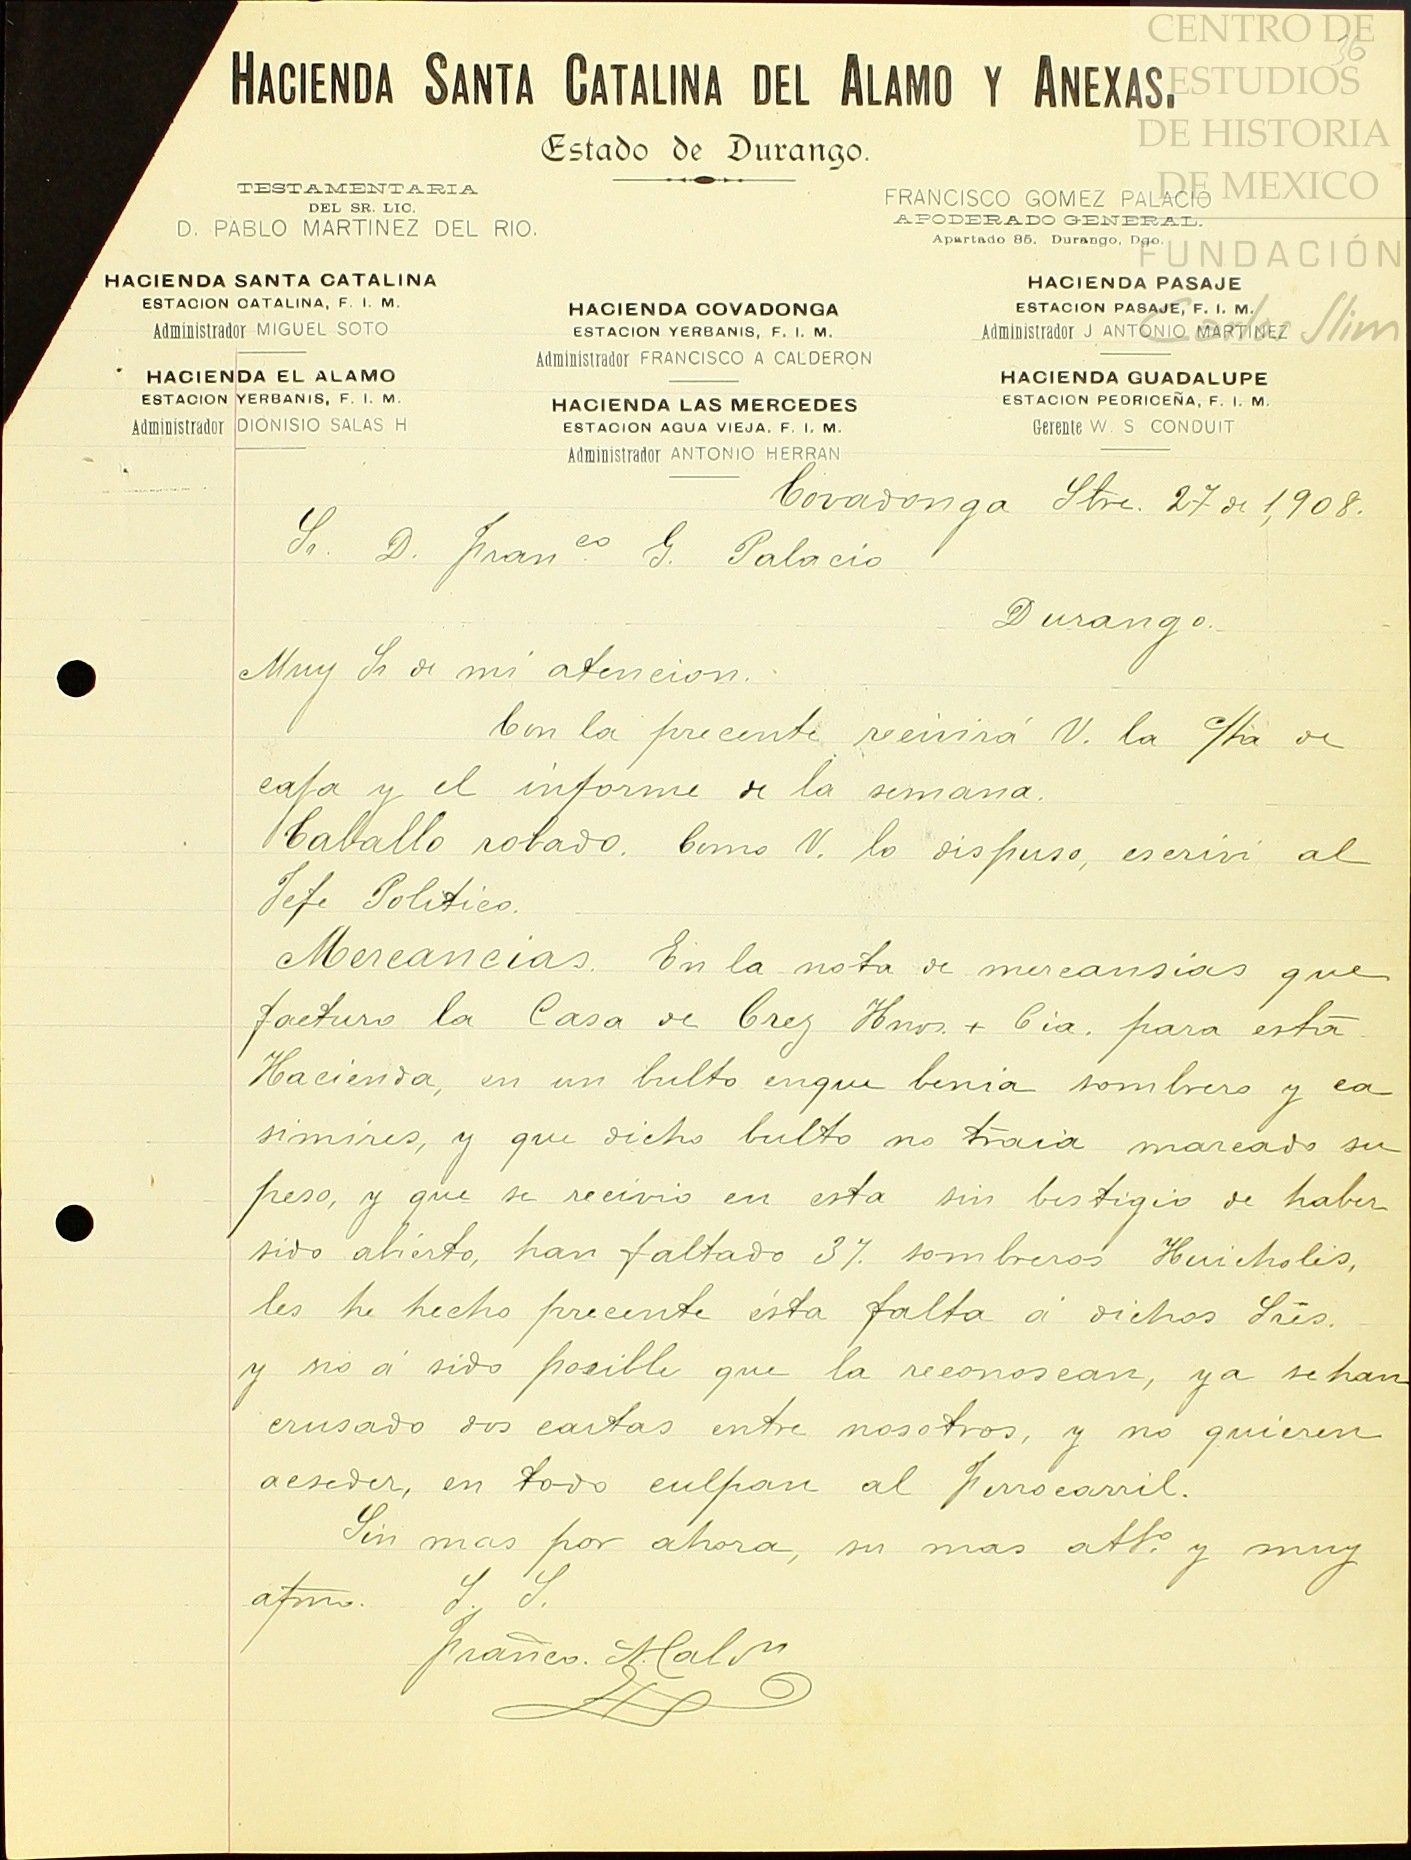 CENTRO DE
ESTUDIOS
DE HISTORIA
DE MEXICO
FUNDACIÓN
Carlos Slim
36
HACIENDA SANTA CATALINA DEL ALAMO Y ANEXAS.
Estado de Durango.
TESTAMENTARIA
DEL SR. LIC.
D. PABLO MARTINEZ DEL RIO.
FRANCISCO GOMEZ PALACIO
APODERADO GENERAL.
Apartado 85. Durango, Dgo.
HACIENDA SANTA CATALINA
ESTACION CATALINA, F. I. M.
Administrador MIGUEL SOTO
HACIENDA EL ALAMO
ESTACION YERBANIS, F. I. M.
Administrador DIONISIO SALAS H
HACIENDA COVADONGA
ESTACION YERBANIS, F. I. M.
Administrador FRANCISCO A CALDERON
HACIENDA LAS MERCEDES
ESTACION AGUA VIEJA, F. I. M.
Administrador ANTONIO HERRAN
HACIENDA PASAJE
ESTACION PASAJE, F. I. M.
Administrador J ANTONIO MARTINEZ
HACIENDA GUADALUPE
ESTACION PEDRICEÑA, F. I. M.
Gerente W. S CONDUIT
Covadonga Stre. 27 de 1,908.
Sr. D. Franco G. Palacio
Durango.
Muy Sr de mi atencion.
Con la precente recivirá V. la c/ta de
caja y el informe de la semana.
Caballo robado. Como V. lo dispuso, escrivi al
Jefe Politico.
Mercancias. En la nota de mercansias que
facturo la Casa de Hnos. + Cia. para esta
Hacienda, en un bulto enque benia sombrero y ca
simires, y que dicho bulto no traia marcado su
peso, y que se recivio en esta sin bestigio de haber
sido abierto, han faltado 37. sombreros Huicholes,
les he hecho precente ésta falta á dichos Sres.
y no á sido posible que la reconoscan, ya sehan
crusado dos cartas entre nosotros, y no quieren
acseder, en todo culpan al Ferrocarril.
Sin mas por ahora, su mas atto. y muy
afmo. S. S.
Franco. A. Calon